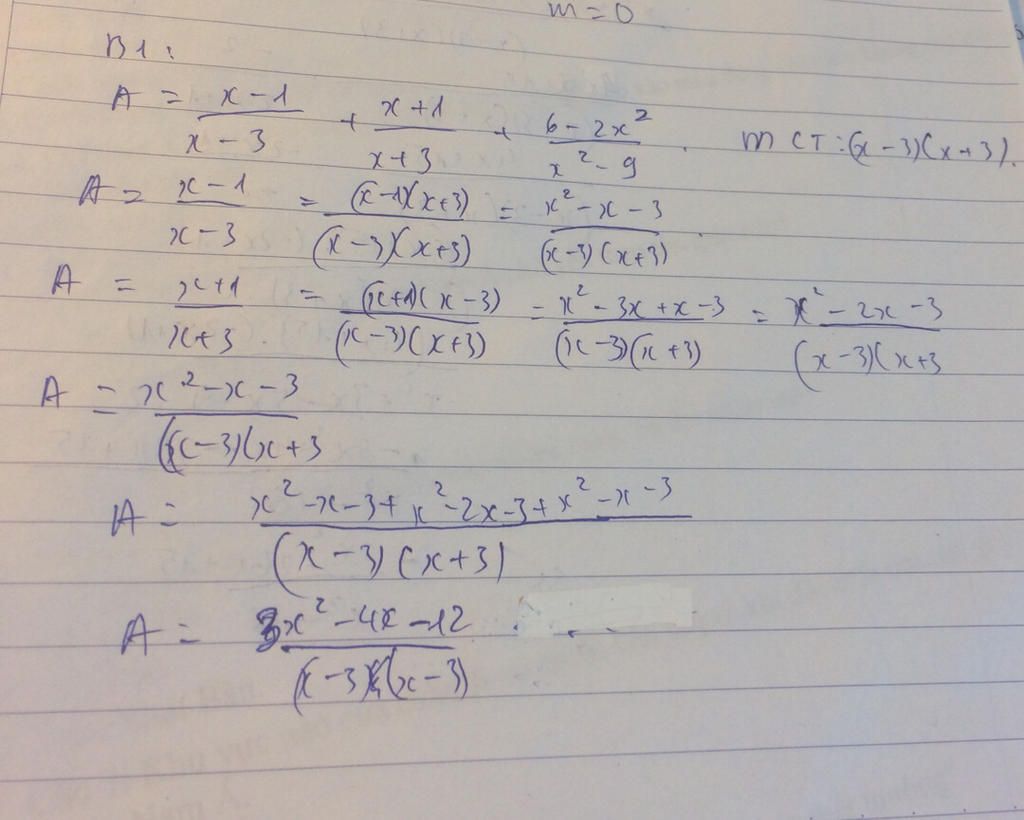 m = 0
B1:
A = \frac{x-1}{x-3} + \frac{x+1}{x+3} + \frac{6-2x^2}{x^2-9}. MCT: (x-3)(x+3).
A = \frac{x-1}{x-3} = \frac{(x-1)(x+3)}{(x-3)(x+3)} = \frac{x^2-x-3}{(x-3)(x+3)}
A = \frac{x+1}{x+3} = \frac{(x+1)(x-3)}{(x-3)(x+3)} = \frac{x^2-3x+x-3}{(x-3)(x+3)} = \frac{x^2-2x-3}{(x-3)(x+3}
A = \frac{x^2-x-3}{(x-3)(x+3}
A = \frac{x^2-x-3+x^2-2x-3+x^2-x-3}{(x-3)(x+3)}
A = \frac{3x^2-4x-12}{(x-3)(x-3)}